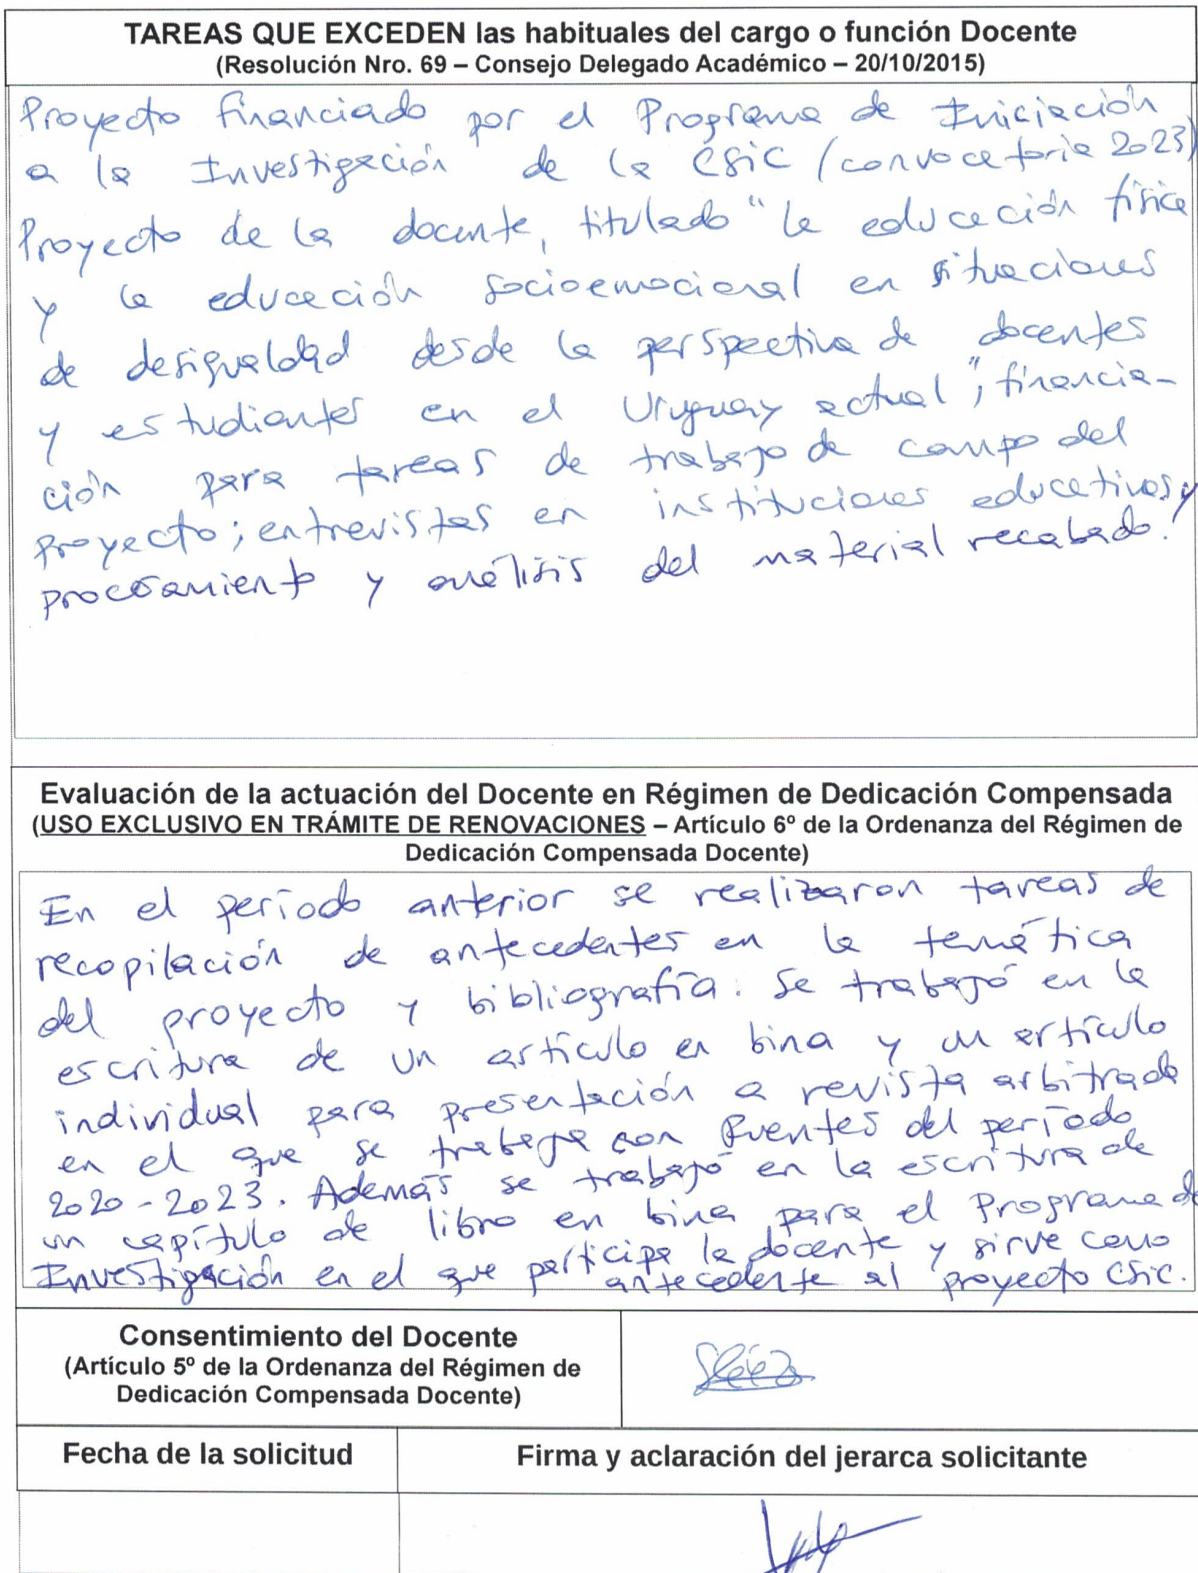 TAREAS QUE EXCEDEN las habituales del cargo o función Docente
(Resolución Nro. 69 – Consejo Delegado Académico – 20/10/2015)
Proyecto financiado por el Programa de Iniciación
a la Investigación de la CSIC (convocatoria 2023)
Proyecto de la docente, titulado "la educación física
y la educación socioemocional en situaciones
de desigualdad desde la perspectiva de docentes
y estudiantes en el Uruguay actual"; financia-
ción para tareas de trabajo de campo del
proyecto; entrevistas en instituciones educativas y
procesamiento y análisis del material recabado.
Evaluación de la actuación del Docente en Régimen de Dedicación Compensada
(USO EXCLUSIVO EN TRÁMITE DE RENOVACIONES – Artículo 6º de la Ordenanza del Régimen de
Dedicación Compensada Docente)
En el período anterior se realizaron tareas de
recopilación de antecedentes en la temática
del proyecto y bibliografía. Se trabajó en la
escritura de un artículo en bina y un artículo
individual para presentación a revista arbitrada
en el que se trabaja con fuentes del período
2020-2023. Además se trabajó en la escritura de
un capítulo de libro en bina para el Programa de
Investigación en el que participa la docente y sirve como
antecedente al proyecto CSIC.
Consentimiento del Docente
(Artículo 5º de la Ordenanza del Régimen de
Dedicación Compensada Docente)
Fecha de la solicitud
Firma y aclaración del jerarca solicitante